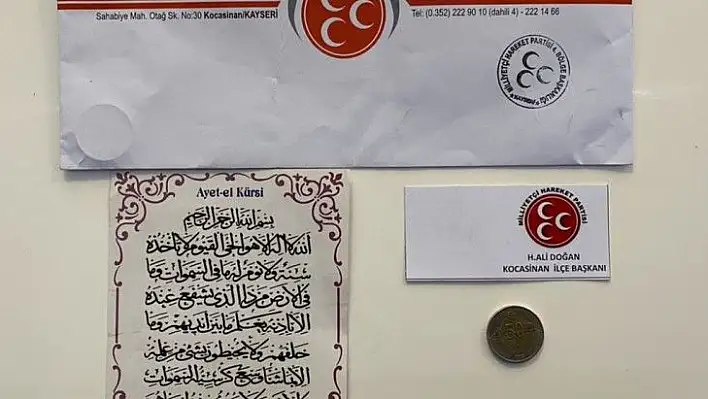 Sahabiye Mah. Otağ Sk. No:30 Kocasinan/KAYSERİ
Tel: (0.352) 222 90 10 (dahili 4) - 222 14 66
MİLLİYETÇİ HAREKET PARTİSİ 4. BÖLGE BAŞKANLIĞI
Ayet-el Kürsi
بسم الله الرحمن الرحيم
الله لا اله الا هو الحي القيوم لا تأخذه
سنة ولا نوم له ما في السموات وما
في الارض من ذا الذي يشفع عنده
الا باذنه يعلم ما بين ايديهم وما
خلفهم ولا يحيطون بشيء من علمه
الا بما شاء وسع كرسيه السموات
MİLLİYETÇİ HAREKET PARTİSİ
H.ALİ DOĞAN
KOCASİNAN İLÇE BAŞKANI